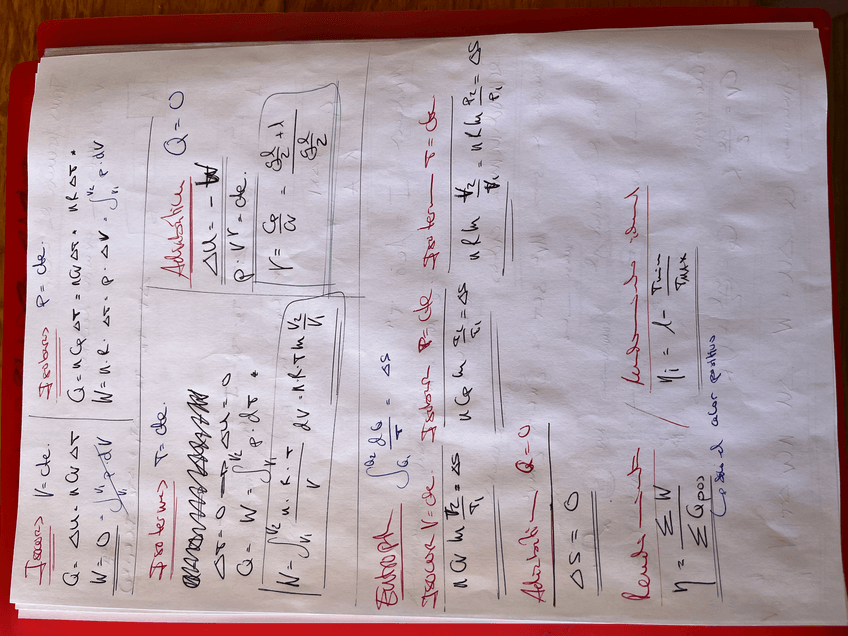 Isocoro V=cte.
Q = ΔU = nCv ΔT
W = 0 = ∫_{V1}^{V2} p·dV
Isobaro P=cte.
Q = nCp ΔT = nCv ΔT + nRΔT
W = n·R·ΔT = p·ΔV = ∫_{V1}^{V2} p·dV
Isotermo T=cte.
ΔT=0 → ΔU=0
Q = W = ∫^{V2} p·dT
W = ∫_{V1}^{V2} n·R·T/V dV = n·R·T ln V2/V1
Adiabático Q=0
ΔU = -W
p·V^γ = cte.
γ = Cp/Cv =
Entropía ∫_{Q1}^{Q2} dQ/T = ΔS
Isocor V=cte.
nCv ln T2/T1 = ΔS
Isobar P=cte
nCp ln T2/T1 = ΔS
Isoterm T=cte
nR ln V2/V1 = nR ln P2/P1 = ΔS
Adiabático Q=0
ΔS = 0
Rendimiento
η = ΣW/ΣQpos
es el calor positivo
Rendimiento ideal
ηi = 1 - Tmin/Tmax